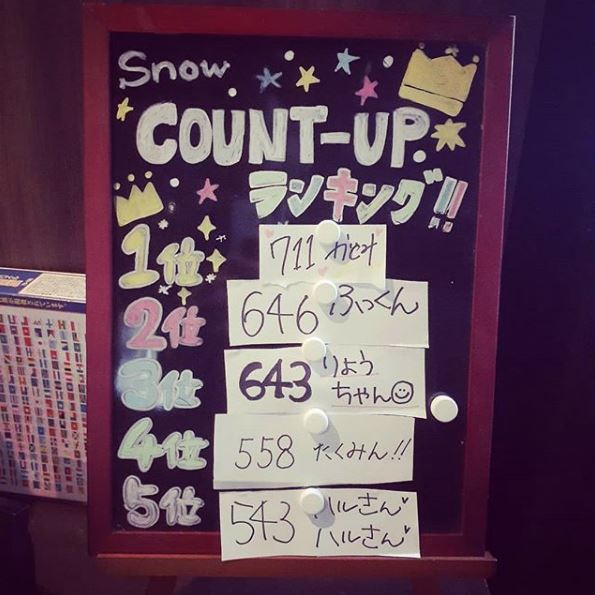 Snow
COUNT-UP.
ランキング!!
1位 711
2位 646 ふっくん
3位 643 りょう
ちゃん
4位 558 たくみん!!
5位 543 ハルさん♥
ハルさん♥